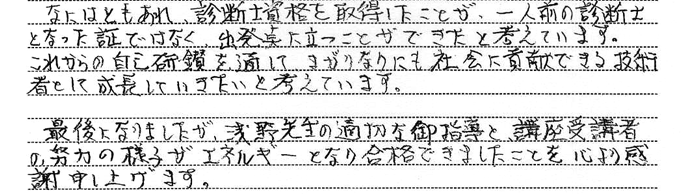 なにはともあれ、診断士資格を取得したことが、一人前の診断士
となった証ではなく、出発点に立つことができたと考えています。
これからの自己研鑽を通して、まがりなりにも社会に貢献できる技術
者として成長していきたいと考えています。
最後になりましたが、浅野先生の適切な御指導と、講座受講者
の努力の様子がエネルギーとなり合格できましたことを心より感
謝申し上げます。